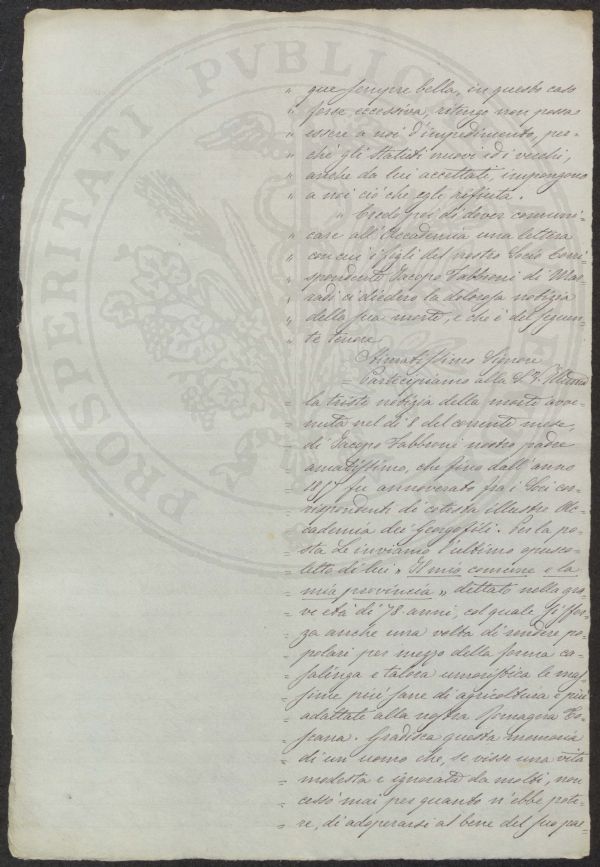 " que sempre bella, in questo caso
" forse eccessiva, ritengo non possa
" essere a noi d'impedimento, per-
" chè gli Statuti nuovi ed i vecchi,
" anche da lui accettati, impongono
" a noi ciò che egli rifiuta.
" " Credo poi di dover comuni-
" care all'Accademia una lettera
" con cui i figli del nostro Socio Corri-
" spondente Jacopo Fabbroni di Mar-
" radi ci diedero la dolorosa notizia
" della sua morte, e che è del seguen-
" te tenore
Stimatissimo Signore
= Partecipiamo alla S. V. Illma
= la triste notizia della morte avve-
= nuta nel dì 8 del corrente mese,
= di Jacopo Fabbroni nostro padre
= amatissimo, che fino dall'anno
= 1857 fu annoverato fra i Soci cor-
= rispondenti di cotesta illustre Ac-
= cademia dei Georgofili. Per la po-
= sta Le inviamo l'ultimo opusco-
= letto di lui " Il mio comune e la
= mia provincia " dettato nella gra-
= ve età di 78 anni, col quale si sfor-
= za anche una volta di rendere po-
= polari per mezzo della forma ca-
= salinga e talora umoristica le mas-
= sime più sane di agricoltura e più
= adattate alla nostra Romagna To-
= scana. Gradisca questa memoria
= di un uomo che, se visse una vita
= modesta e ignorata da molti, non
= cessò mai per quanto n'ebbe pote-
= re, di adoperarsi al bene del suo pae-
PROSPERITATI PVBLICAE